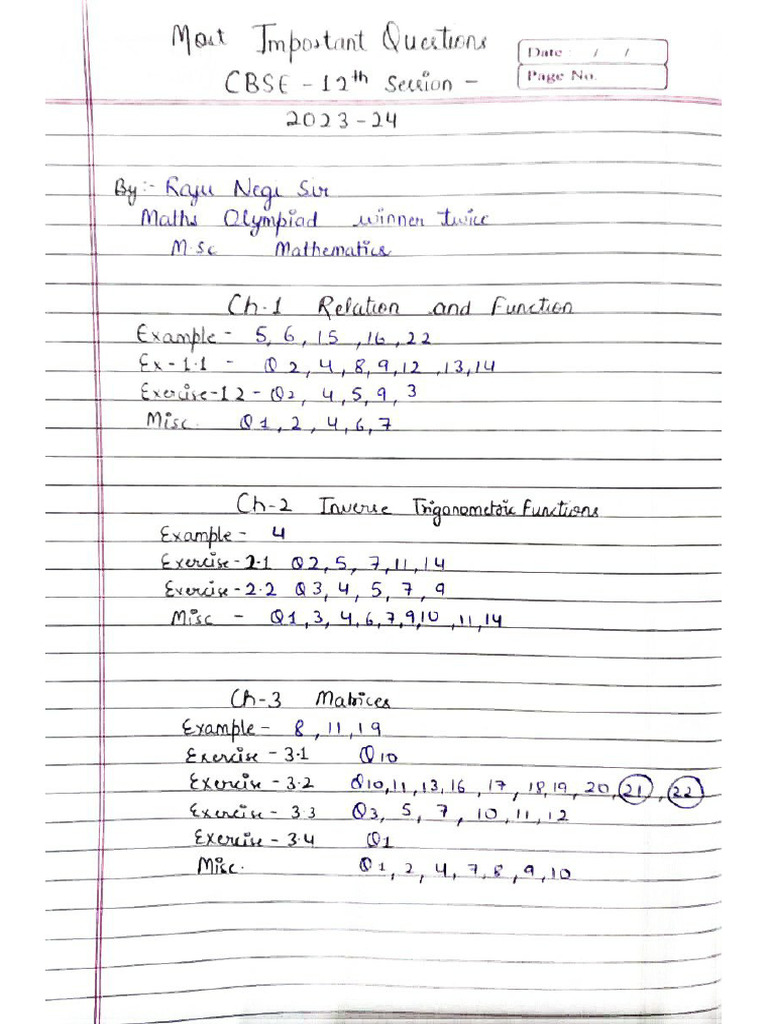 Most Important Questions
Date : / /
Page No.
CBSE - 12th Session -
2023-24
By:- Raju Negi Sir
Maths Olympiad winner twice
M.Sc Mathematics
Ch-1 Relation and Function
Example - 5, 6, 15, 16, 22
Ex-1.1 - Q 2, 4, 8, 9, 12, 13, 14
Exercise-1.2 - Q2, 4, 5, 9, 3
Misc. Q1, 2, 4, 6, 7
Ch-2 Inverse Trigonometric Functions
Example - 4
Exercise - 2.1 Q2, 5, 7, 11, 14
Exercise - 2.2 Q3, 4, 5, 7, 9
Misc - Q1, 3, 4, 6, 7, 9, 10, 11, 14
Ch-3 Matrices
Example - 8, 11, 19
Exercise - 3.1 Q10
Exercise - 3.2 Q10, 11, 13, 16, 17, 18, 19, 20, 21, 22
Exercise - 3.3 Q3, 5, 7, 10, 11, 12
Exercise - 3.4 Q1
Misc. Q1, 2, 4, 7, 8, 9, 10